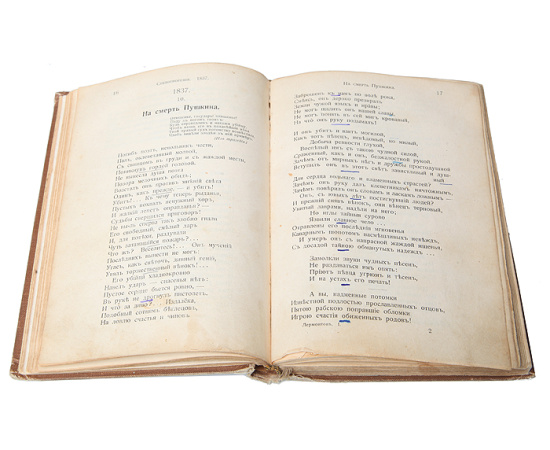 16
1837.
На смерть Пушкина.
Погибъ поэтъ, невольникъ чести,
Палъ, оклеветанный молвой,
Съ свинцомъ въ груди и съ жаждой мести,
Поникнувъ гордой головой!
Не вынесла душа поэта
Позора мелочныхъ обидъ,
Возсталъ онъ противъ мнѣній свѣта
Одинъ, какъ прежде, — и убитъ!
Убитъ!.. Къ чему теперь рыданья,
Пустыхъ похвалъ ненужный хоръ,
И жалкій лепетъ оправданья?
Судьбы свершился приговоръ!
Не вы-ль сперва такъ злобно гнали
Его свободный, смѣлый даръ
И, для потѣхи, раздували
Чуть затаившійся пожаръ?..
Что-жъ? Веселитесь!.. Онъ мученій
Послѣднихъ вынести не могъ.
Угасъ, какъ свѣточъ, дивный геній,
Увялъ торжественный вѣнокъ!..
Его убійца хладнокровно
Навелъ ударъ — спасенья нѣтъ:
Пустое сердце бьется ровно,
Въ рукѣ не дрогнулъ пистолетъ.
И что за диво?.. Издалёка,
Подобный сотнямъ бѣглецовъ,
На ловлю счастья и чиновъ
На смерть Пушкина.
17
Заброшенъ къ намъ по волѣ рока,
Смѣясь, онъ дерзко презиралъ
Земли чужой языкъ и нравы;
Не могъ щадить онъ нашей славы,
Не могъ понять въ сей мигъ кровавый,
На что онъ руку поднималъ!
И онъ убитъ и взятъ могилой,
Какъ тотъ пѣвецъ, невѣдомый, но милый,
Добыча ревности глухой,
Воспѣтый имъ съ такою чудной силой,
Сраженный, какъ и онъ, безжалостной рукой.
Зачѣмъ отъ мирныхъ нѣгъ и дружбы простодушной
Вступилъ онъ въ этотъ свѣтъ завистливый и душ-
ный
Для сердца вольнаго и пламенныхъ страстей?
Зачѣмъ онъ руку далъ клеветникамъ ничтожнымъ,
Зачѣмъ повѣрилъ онъ словамъ и ласкамъ ложнымъ,
Онъ, съ юныхъ лѣтъ постигнувшій людей?
И прежній снявъ вѣнокъ, они вѣнецъ терновый,
Увитый лаврами, надѣли на него;
Но иглы тайныя сурово
Язвили славное чело;
Отравлены его послѣднія мгновенья
Коварнымъ шопотомъ насмѣшливыхъ невѣждъ,
И умеръ онъ съ напрасной жаждой мщенья,
Съ досадой тайною обманутыхъ надеждъ...
Замолкли звуки чудныхъ пѣсенъ,
Не раздаваться имъ опять:
Пріютъ пѣвца угрюмъ и тѣсенъ,
И на устахъ его печать!
А вы, надменные потомки
Извѣстной подлостью прославленныхъ отцовъ,
Пятою рабскою поправшіе обломки
Игрою счастія обиженныхъ родовъ!
Лермонтовъ.
2